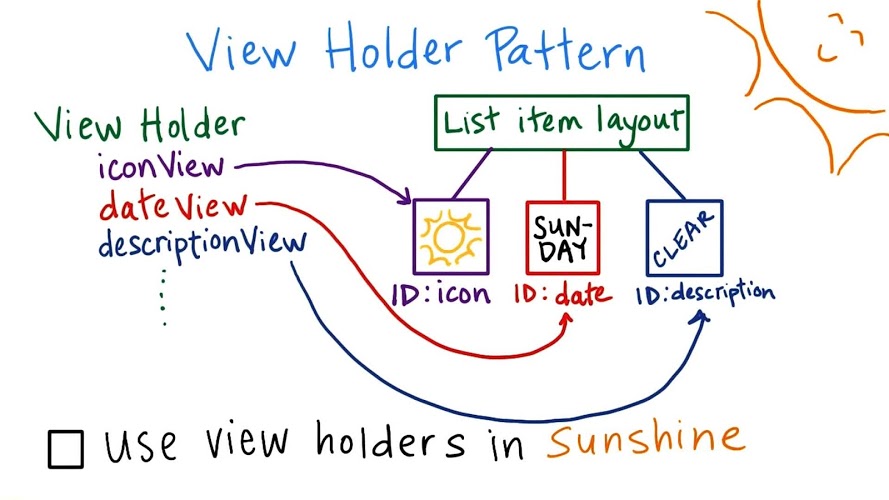 View Holder Pattern
View Holder
iconView
dateView
descriptionView
List item layout
SUN-
DAY
CLEAR
ID: icon
ID: date
ID: description
Use view holders in Sunshine